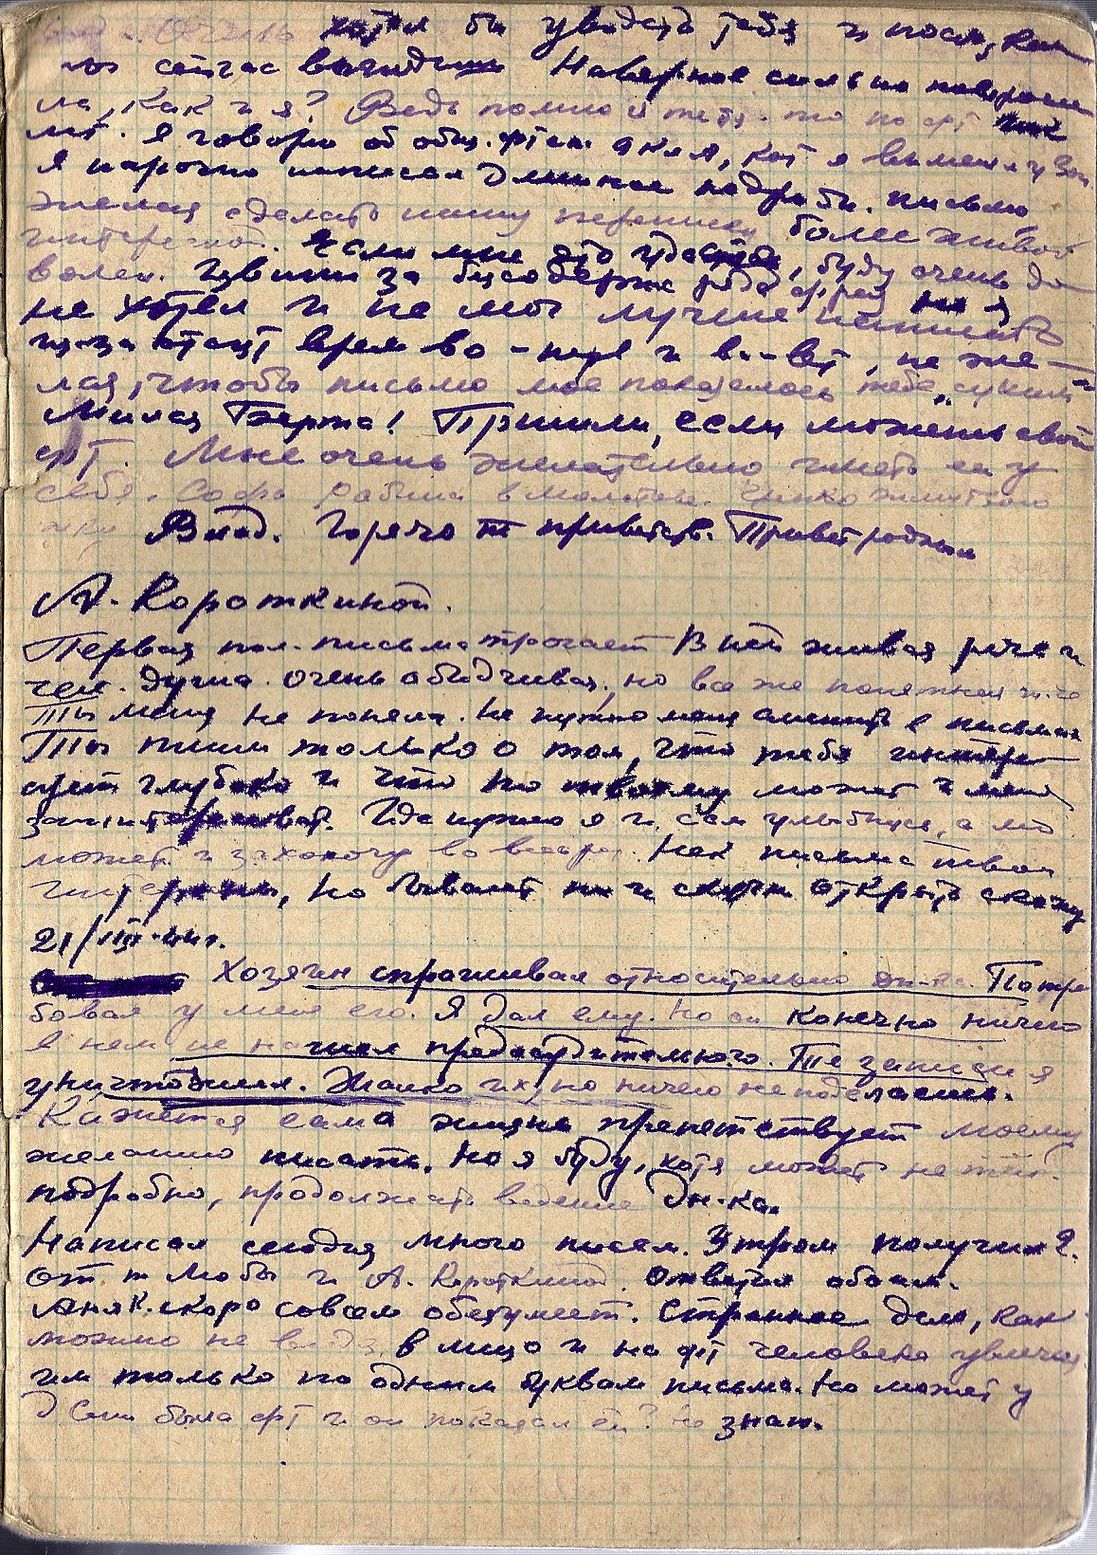 Очень хотел бы увидеть тебя и посм, как
ты сейчас выглядишь Наверное сильно повзросле
ла, как и я? Ведь помню я тебя по фт
лет. Я говорю об общ. фт
Я нарочно написал длинное подробн. письмо
желая сделать нашу переписку более живой
интересной. Если мне это удастся, буду очень до
волен. Извини за бессодерж
не хотел и не мог лучше написать
из-за отсут врем во и, не же-
лая, чтобы письмо мое показалось тебе „сухим"
Милая Бэрта! Пришли, если можешь свою
фт. Мне очень желательно иметь ее у
себя.
Влад. Горячо т приветств. Привет родным
А. Короткиной.
Первая пол. письма трогает В ней живая речь и
чел. душа. Очень обидчивая, но все же
Ты меня не поняла. Не нужно меня смешить в письмах
Ты пиши только о том, что тебя интере-
сует глубоко и что по твоему может и меня
заинтересоват. Где нужно я и сам улыбнусь, а мо
может и захохочу во Нет письма твои
интересны, но бывает и скучн открыто скажу
21/III-44г.
Хозяин спрашивал относительно дн-ка. Потре
бовал у меня его. Я дал ему. Но он конечно ничего
в нем не нашел предосудительного. Те записи я
уничтожил. Жалко их, но ничего не поделаешь.
Кажется сама жизнь препятствует моему
желанию писать. Но я буду, хотя может не так
подробно, продолжать ведение Дн-ка.
Написал сегодня много писем. Утром получил 2.
От т Любы и А. Короткиной Ответил обоим.
Аня К. скоро совсем обезумеет. Странное дело, как
можно не видя в лицо и на фт человека увлечься
им только по одним буквам письма. Но может у
была фт и он показал ей? Не знаю.